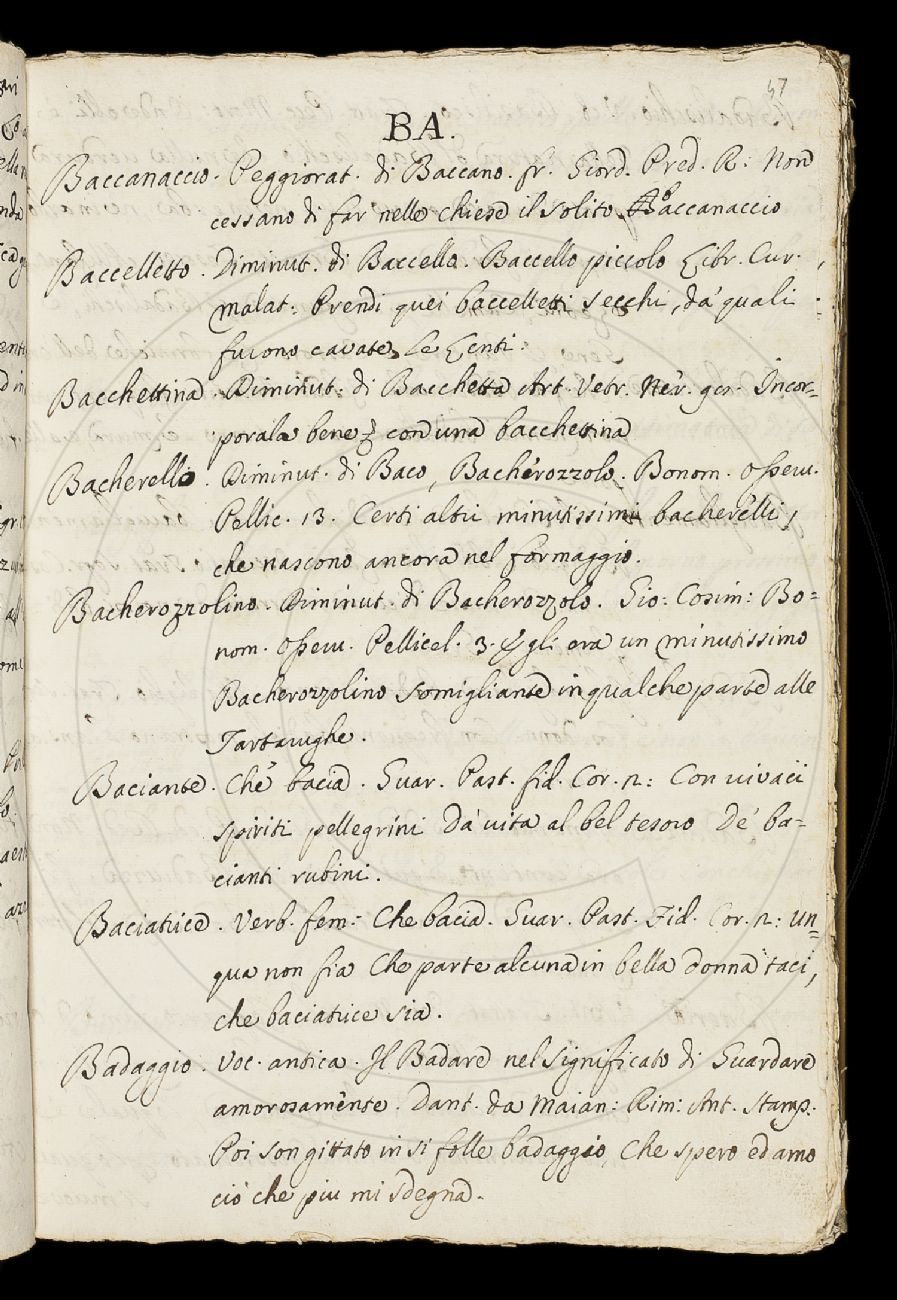 47
BA.
Baccanaccio. Peggiorat. di Baccano. fr. Giord. Pred. R: Non
cessano di far nelle chiese il solito Baccanaccio
Baccelletto. Diminut. di Baccello. Baccello piccolo Libr. Cur.
malat: Prendi quei baccelletti secchi, da' quali
furono cavate le Lenti.
Bacchettina. Diminut. di Bacchetta Art. Vetr. Ner. gr. Incor-
porala bene con una bacchettina
Bacherello. Diminut. di Baco, Bacherozzolo. Bonom. osserv.
Pellic. 13. Certi altri minutissimi bacherelli,
che nascono ancora nel formaggio.
Bacherozzolino. Diminut. di Bacherozzolo. Gio: Cosim: Bo=
nom. osserv. Pellicel. 3. Egli era un minutissimo
Bacherozzolino somigliante in qualche parte alle
Tartarughe.
Baciante. Che bacia. Guar. Past. fid. Cor. n: Con vivaci
spiriti pellegrini dà vita al bel tesoro de' ba-
cianti rubini.
Baciatrice. Verb. fem: Che bacia. Guar. Past. Fid. Cor. n: Un=
qua non fia Che parte alcuna in bella donna taci,
che baciatrice sia.
Badaggio. Voc. antica. Il Badare nel significato di Guardare
amorosamente. Dant. da Maian: Rim: Ant. Stamp:
Poi son gittato in sì folle badaggio, Che spero ed amo
ciò che piu mi sdegna.